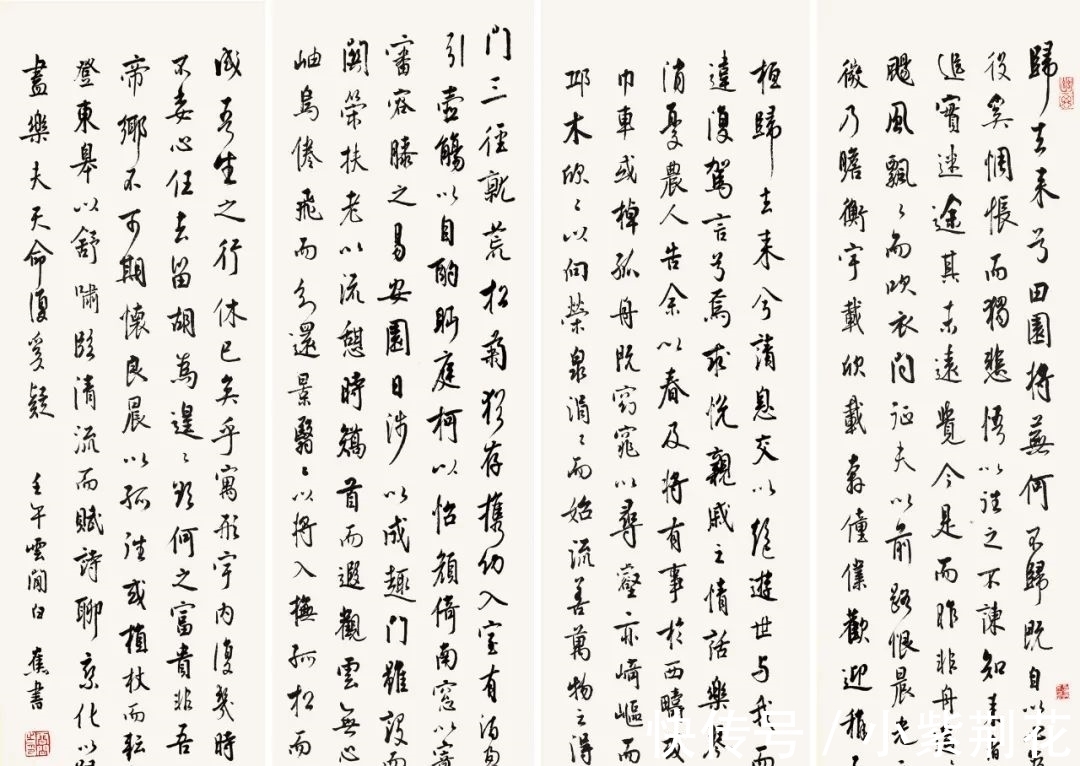 歸去来兮田園將蕪何不歸既自以
役奚惆悵而獨悲悟以往之不諫知来者
追實迷途其未遠覺今是而昨非舟
颺風飄〻而吹衣問征夫以前路恨晨光
微乃瞻衡宇載欣載奔僮僕歡迎稚
桓歸去来兮請息交以絶遊世与我而
違復駕言兮焉求悦親戚之情話樂琴
消憂農人告余以春及將有事於西疇或
巾車或棹孤舟既窈窕以尋壑亦崎嶇而
邱木欣〻以向榮泉涓〻而始流善萬物之得
門三徑就荒松菊猶存攜幼入室有酒盈
引壺觴以自酌眄庭柯以怡顔倚南窓以寄
審容膝之易安園日涉以成趣門雖設而
關策扶老以流憩時矯首而遐觀雲無心
岫鳥倦飛而知還景翳〻以將入撫孤松而
感吾生之行休已矣乎寓形宇内復幾時
不委心任去留胡為遑〻欲何之富貴非吾
帝鄉不可期懷良晨以孤往或植杖而耘
登東皋以舒嘯臨清流而賦詩聊乘化以歸
盡樂夫天命復奚疑 壬午雲間白蕉書
快传号 / 小紫荆花